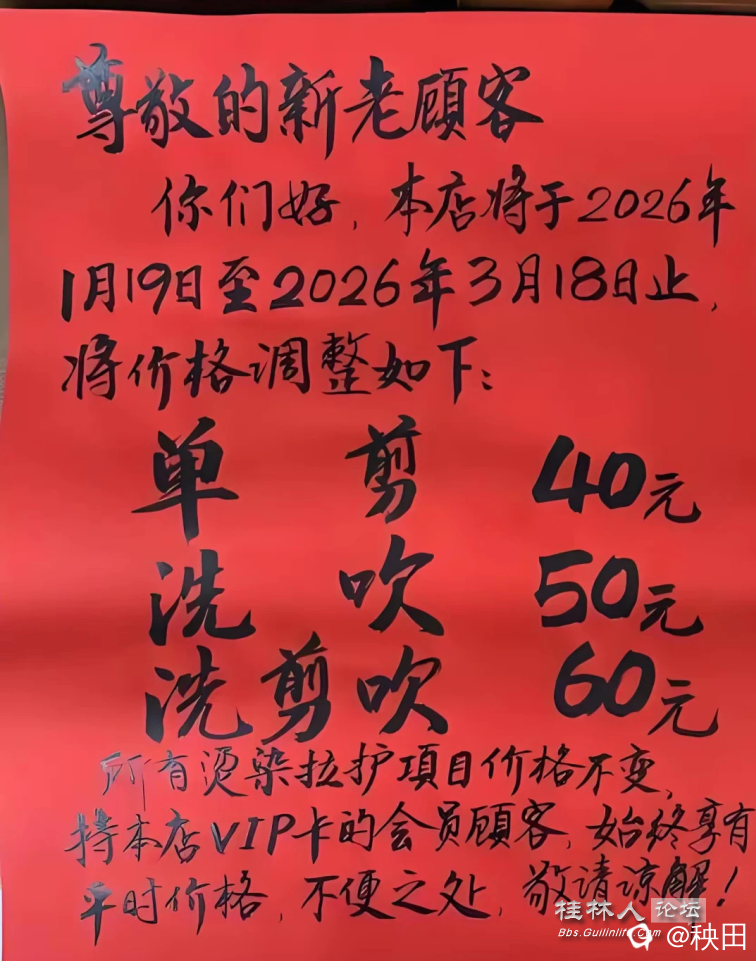 尊敬的新老顾客
你们好，本店将于2026年
1月19日至2026年3月18日止，
将价格调整如下：
单 剪 40元
洗 吹 50元
洗剪吹 60元
所有烫染拉护项目价格不变，
持本店VIP卡的会员顾客，始终享有
平时价格，不便之处，敬请谅解！
桂林人论坛
Bbs.Guilinlife.com
@秧田